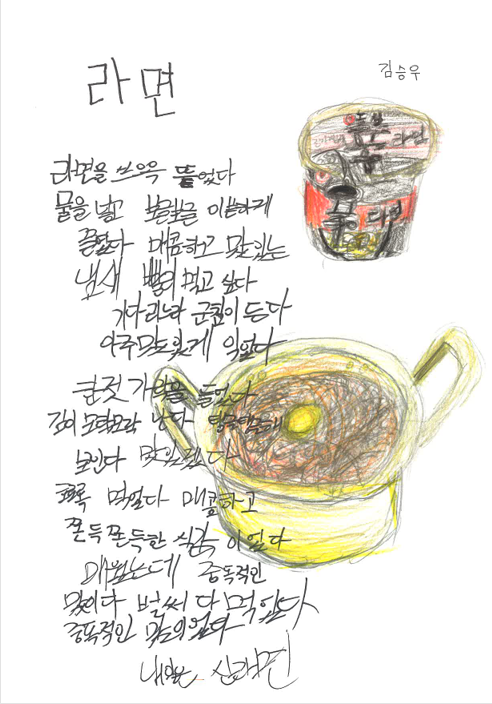 라면
김승우
라면을 쓰으윽 뜯었다
물을 넣고 보글보글 이쁘게
끓였다 매콤하고 맛있는
냄새 빨리 먹고 싶다
기다리느라 군침이 돈다
아주 맛있게 익었다
한 젓가락을 들었다
김이 모락모락 난다 탱글탱글해
보인다 맛있겠다
후루룩 먹었다 매콤하고
쫀득쫀득한 식감이었다
매웠는데 중독적인
맛이다 벌써 다 먹었다
중독적인 맛이었다
내일은 신라면